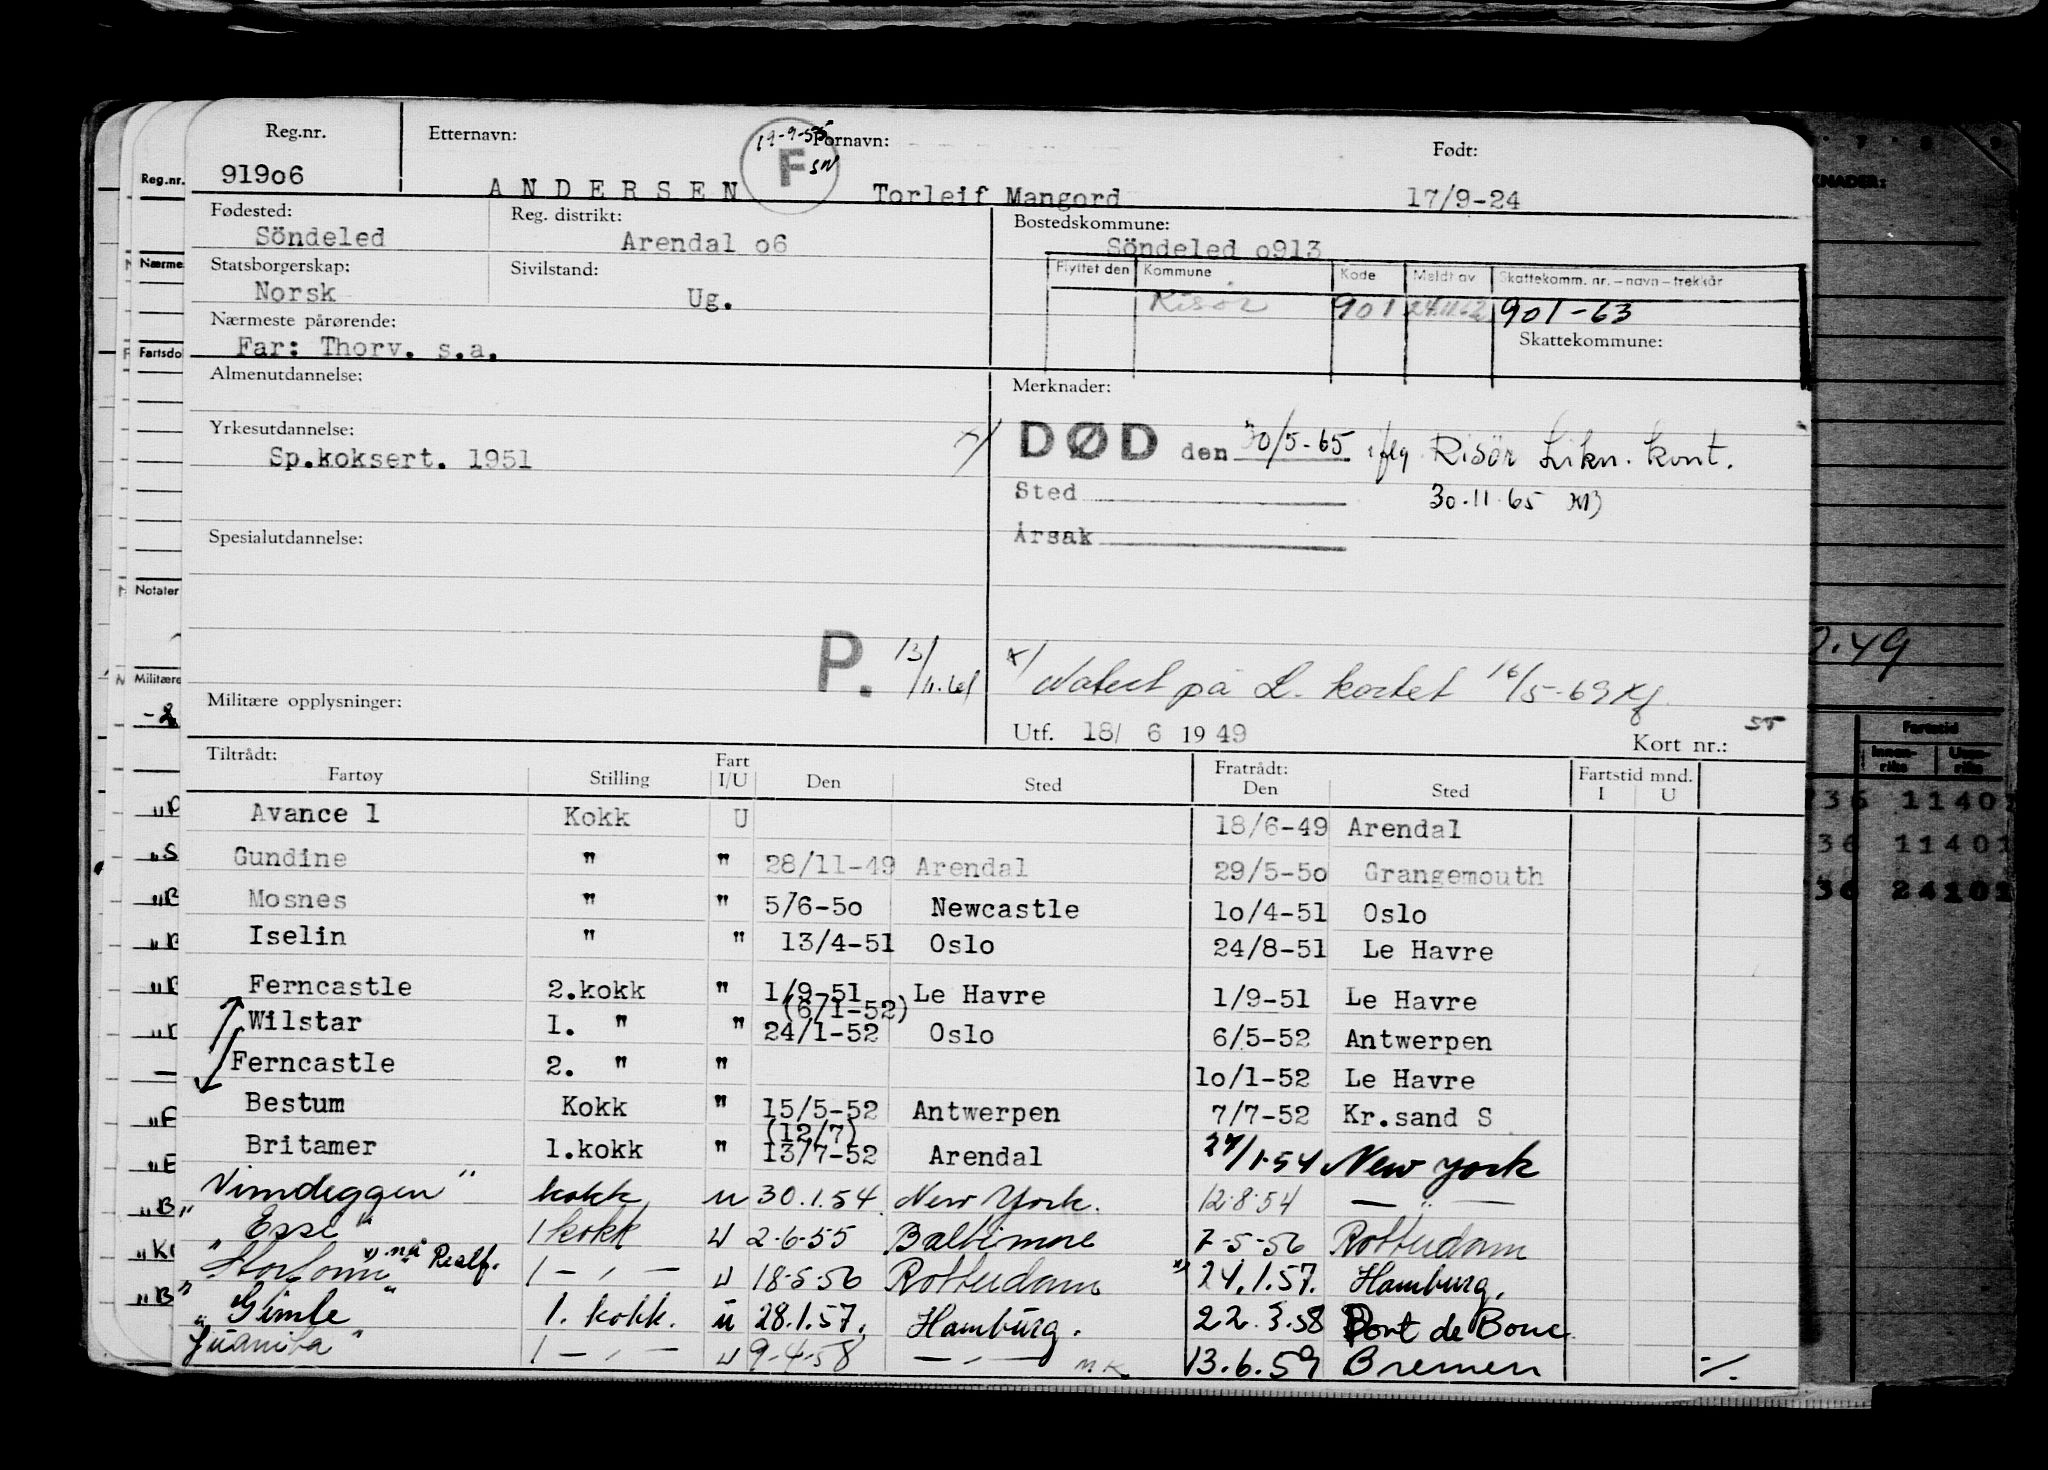 Reg.nr. Etternavn: Fornavn: Født:
19-9-55 F SW
91906 ANDERSEN Torleif Mangord 17/9-24
Fødested: Reg. distrikt: Bostedskommune:
Söndeled Arendal o6 Söndeled o913
Statsborgerskap: Sivilstand: Flyttet den Kommune Kode Meldt av Skattekomm. nr. – navn – trekkår
Norsk Ug. Risör 901 24.11.62 901-63
Nærmeste pårørende: Skattekommune:
Far: Thorv. s.a.
Almenutdannelse: Merknader:
Yrkesutdannelse: x/ DØD den 30/5-65 iflg. Risör Likn. kont.
Sp.koksert. 1951
Sted 30.11.65
Spesialutdannelse: Årsak
P. 13/11.61 x/ Notert på L. kortet 16/5-69 Kf.
Militære opplysninger: Utf. 18/ 6 1949 55
Kort nr.:
Tiltrådt: Fratrådt: Fartstid mnd.
Fartøy Stilling Fart I/U Den Sted Den Sted I U
Avance 1 Kokk U 18/6-49 Arendal
Gundine " " 28/11-49 Arendal 29/5-5o Grangemouth
Mosnes " " 5/6-5o Newcastle 1o/4-51 Oslo
Iselin " " 13/4-51 Oslo 24/8-51 Le Havre
Ferncastle 2.kokk " 1/9-51 Le Havre 1/9-51 Le Havre
(6/1-52)
Wilstar 1. " " 24/1-52 Oslo 6/5-52 Antwerpen
Ferncastle 2. " " 1o/1-52 Le Havre
Bestum Kokk " 15/5-52 Antwerpen 7/7-52 Kr.sand S
(12/7)
Britamer 1.kokk " 13/7-52 Arendal 27/1-54 New York
Vimdeggen" kokk u 30.1.54 New York. 12.8.54 — " —
"Esse" 1 kokk U 2-6-55 Baltimore 7-5-56 Rotterdam
nå Realf. 1 — , — U 18-5-56 Rotterdam 24.1.57. Hamburg.
"Gimle 1. kokk. ü 28.1.57. Hamburg. 22.3.58 Port de Bouc.
Juanita" 1 — , — U 9-4-58 — , — M.K. 13.6.59 Bremen ./.
Reg.nr.
Nærme
Fartsdo
Notater
Militære
KNADER:
Fartstid
Innen-riks Uten-riks
736 11401
36 11401
36 24101